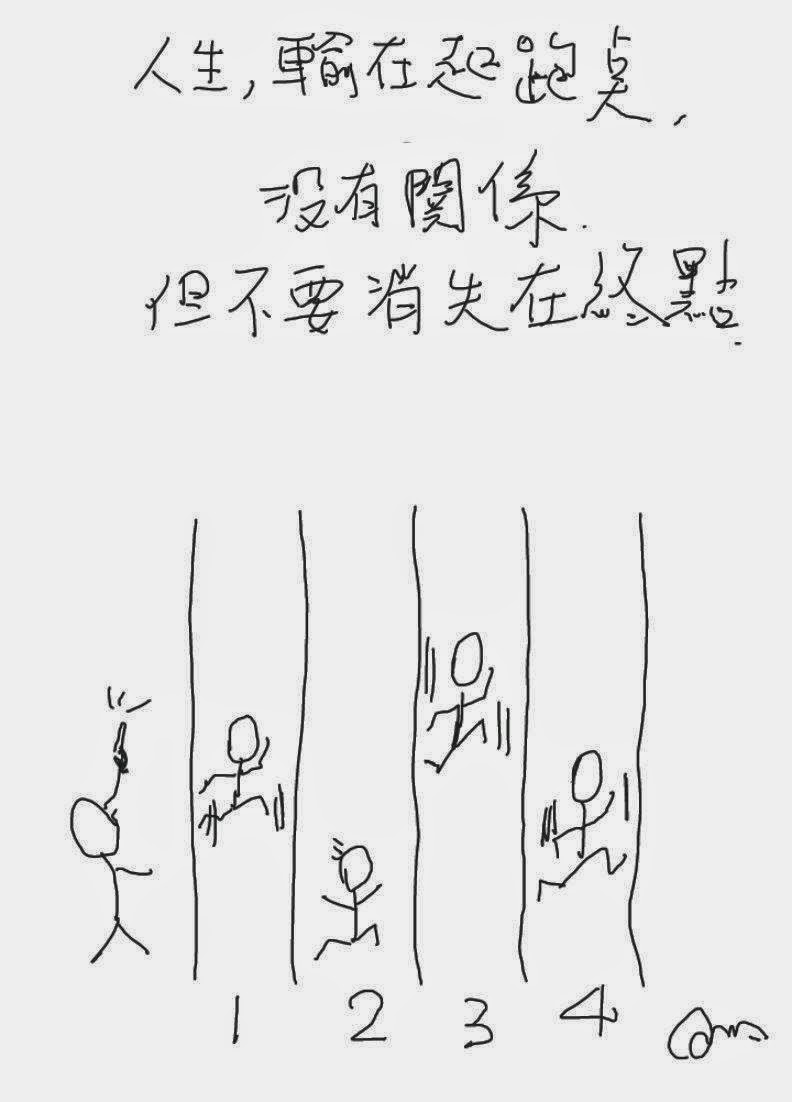 人生,輸在起跑点,
没有関係.
但不要消失在終點.
1 2 3 4